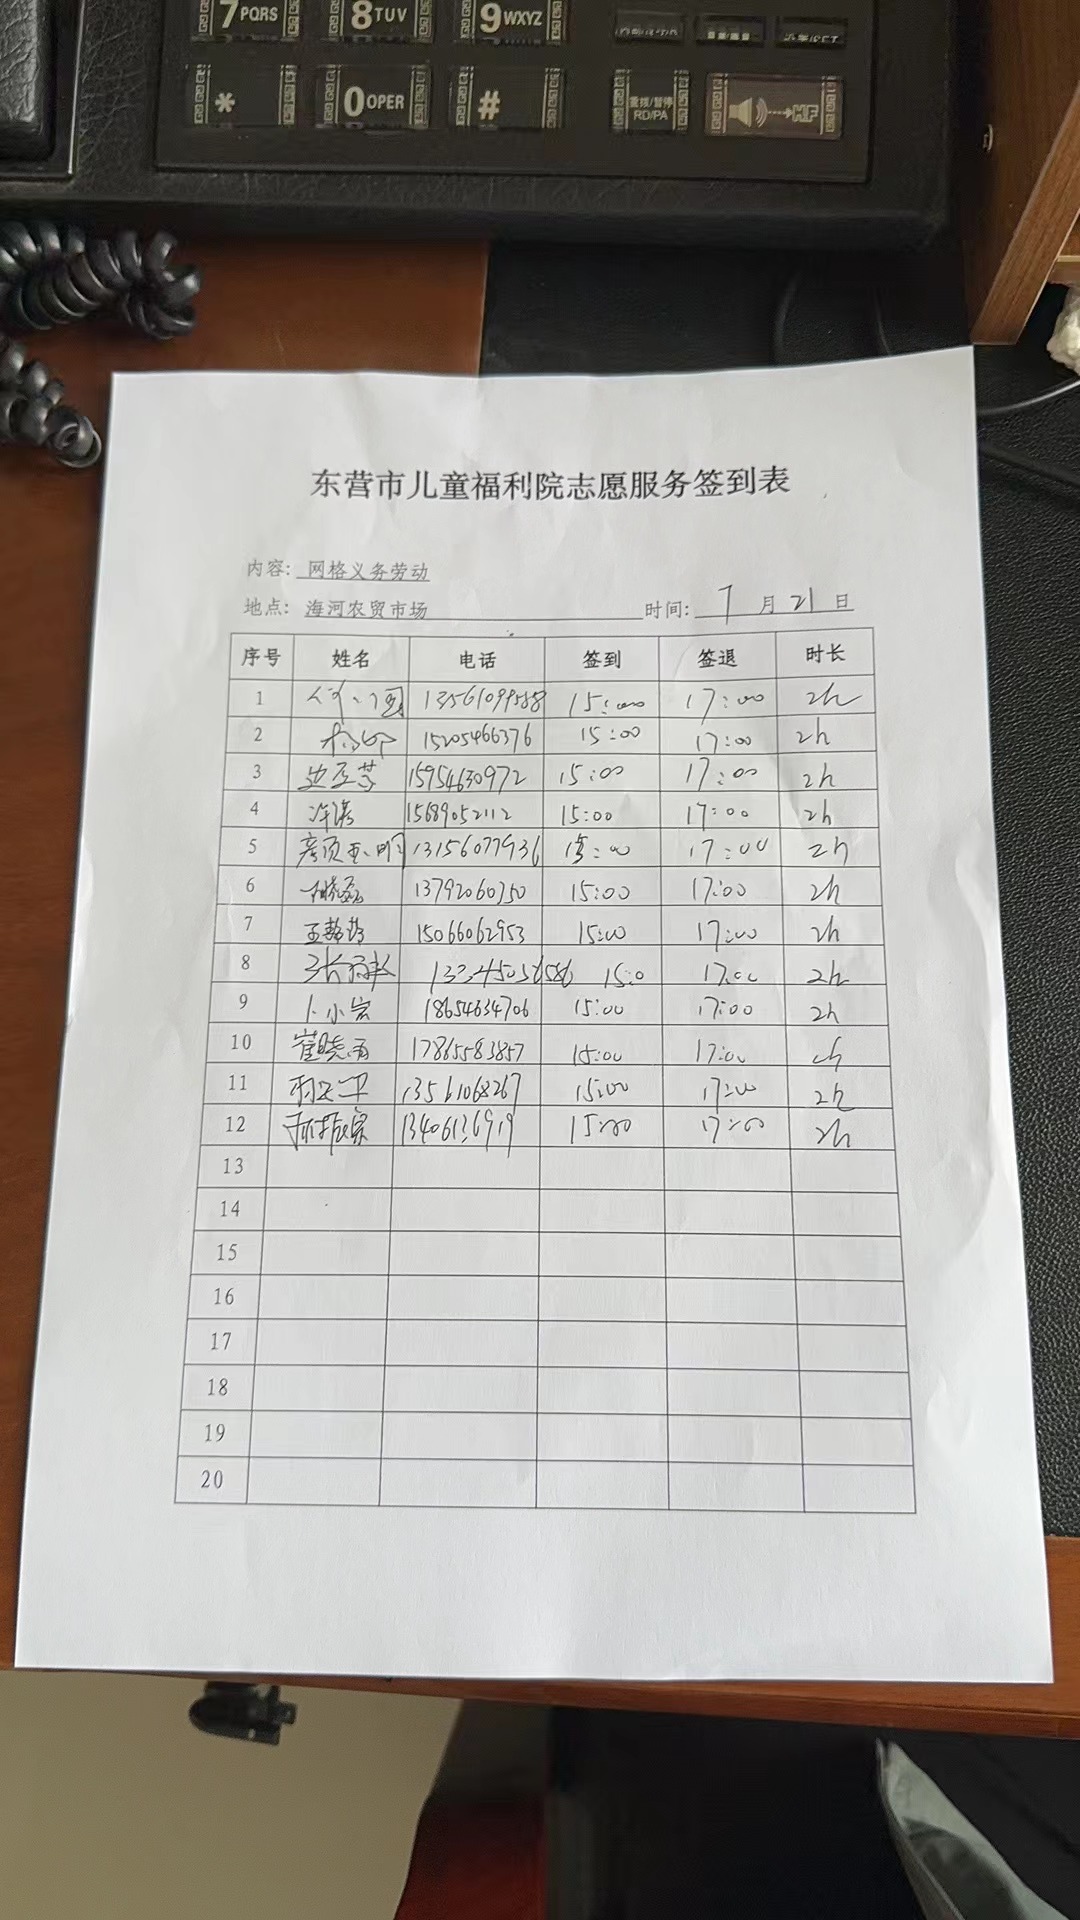 7 PQRS 8 TUV 9 WXYZ
* 0 OPER # 重拨/暂停 HF
RD/PA
东营市儿童福利院志愿服务签到表
内容: 网格义务劳动
地点: 海河农贸市场 时间: 7 月 21 日
序号 姓名 电话 签到 签退 时长
1 13561099588 15:00 17:00 2h
2 15205466376 15:00 17:00 2h
3 15954630972 15:00 17:00 2h
4 许诺 15689052112 15:00 17:00 2h
5 13156077936 15:00 17:00 2h
6 13792060750 15:00 17:00 2h
7 15066062953 15:00 17:00 2h
8 15:0 17:00 2h
9 卜小宏 18654634706 15:00 17:00 2h
10 崔晓雨 17865583857 15:00 17:00 2h
11 13561068267 15:00 17:00 2h
12 13406136919 15:00 17:00 2h
13
14
15
16
17
18
19
20